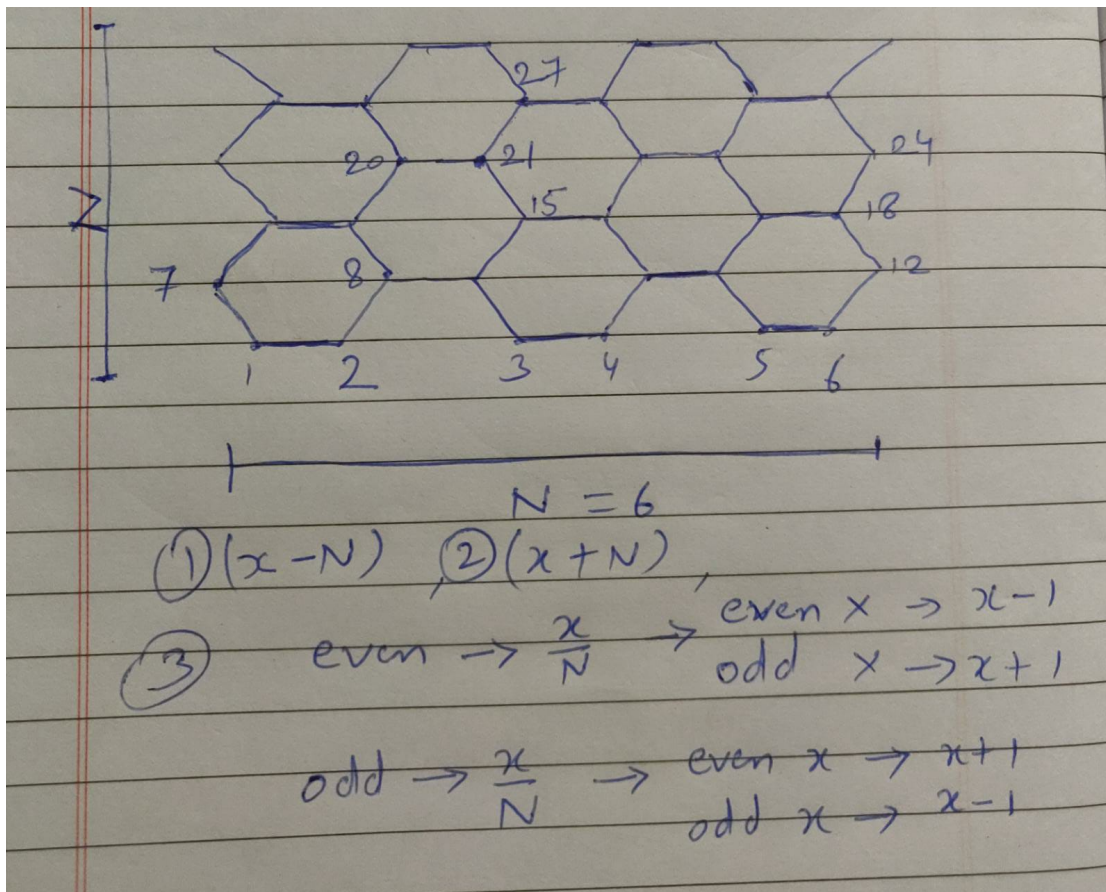 27
20 21 24
15 18
N
7 8 12
1 2 3 4 5 6
N = 6
① (x - N) , ② (x + N) ,
③ even → x/N → even x → x - 1
odd x → x + 1
odd → x/N → even x → x + 1
odd x → x - 1